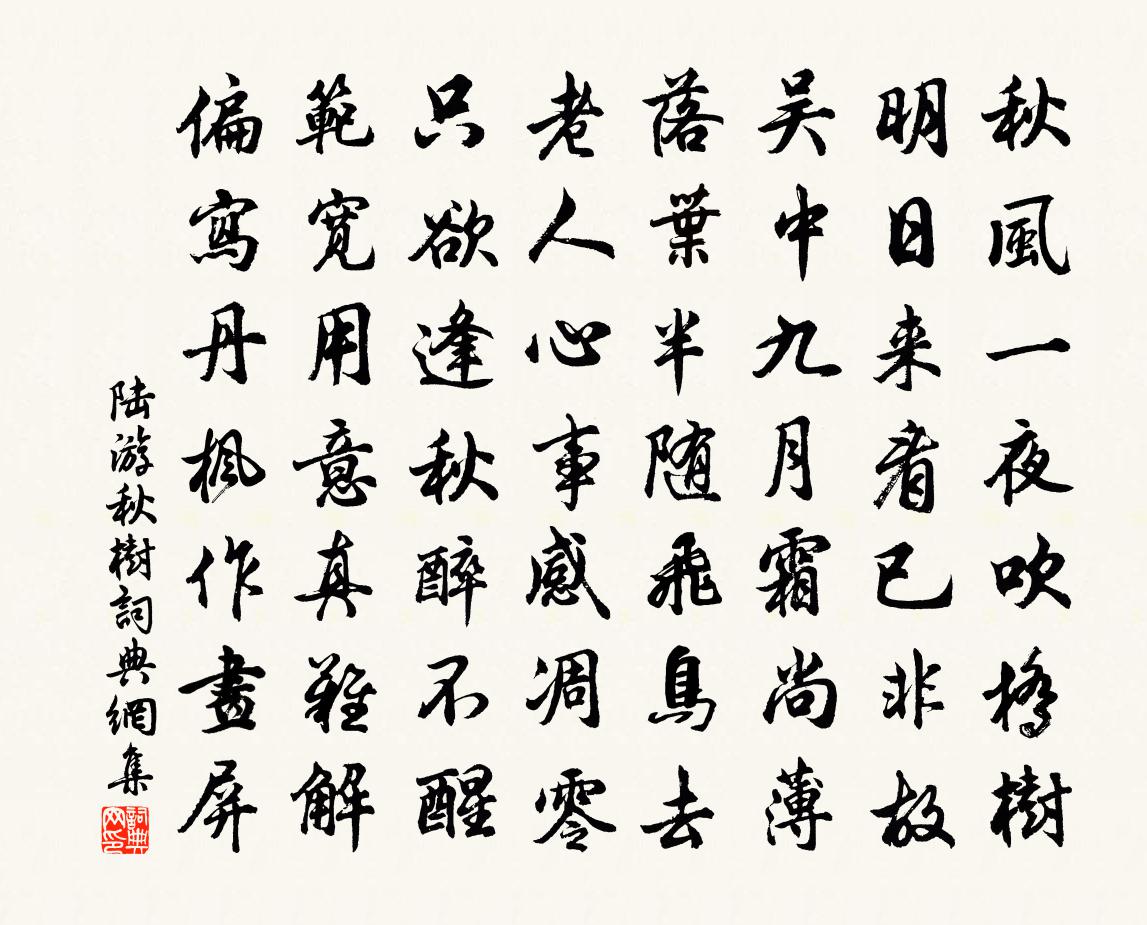 秋風一夜吹橋樹
明日来看已非故
吴中九月霜尚薄
落葉半随飛鳥去
老人心事感凋零
只欲逢秋醉不醒
範寬用意真難解
偏寫丹楓作畫屏
陆游秋樹詞典網集
詞典网印